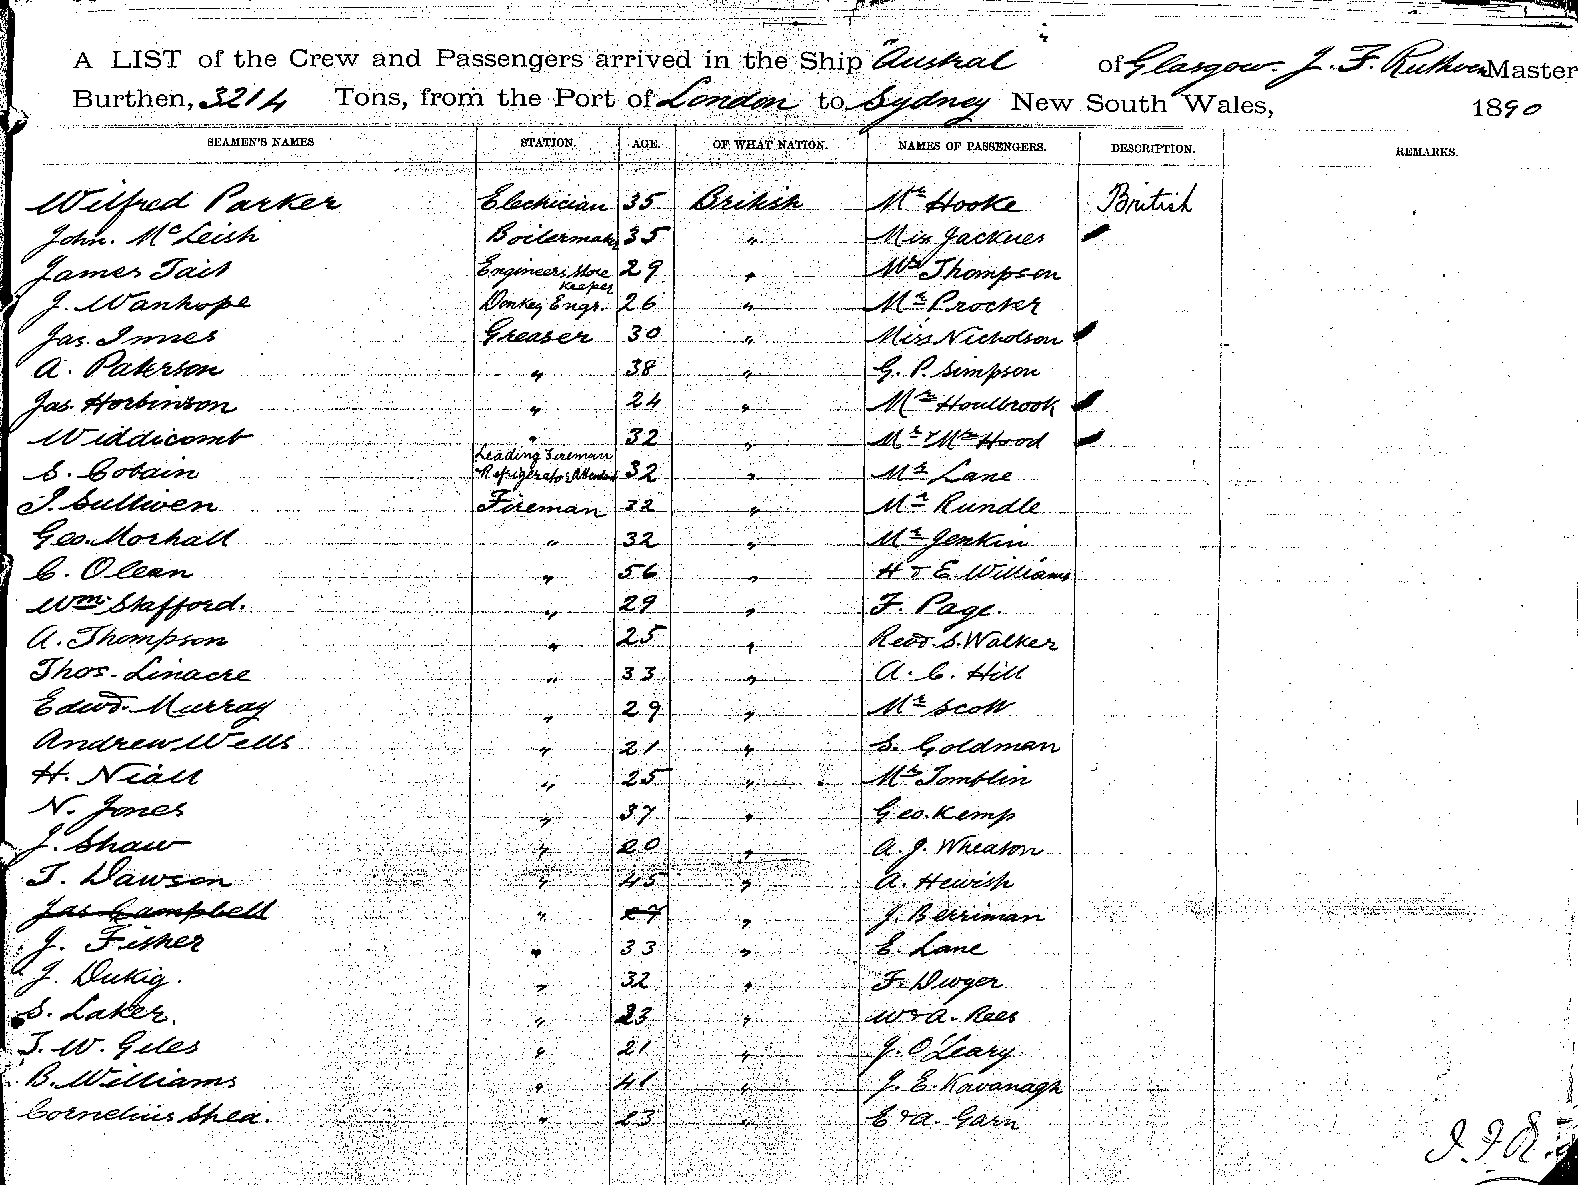 A LIST of the Crew and Passengers arrived in the Ship "Austral" of Glasgow. J. F. Ruthven Master
Burthen, 3214 Tons, from the Port of London to Sydney New South Wales, 1890
SEAMEN'S NAMES STATION. AGE. OF WHAT NATION. NAMES OF PASSENGERS. DESCRIPTION. REMARKS.
Wilfred Parker Electrician 35 British Mr Hooke British
John. McLeish Boilermaker 35 " Miss Jackues
James Tait Engineers Store Keeper 29 " Mrs Thompson
J. Wanhope Donkey Engr. 26 " Mr Procter
Jas. Innes Greaser 30 " Miss Nicholson
A. Paterson " 38 " G. P. Simpson
Jas. Horbinson " 24 " Mr Houlbrook
Widdicomb " 32 " Mr & Mrs Hood
S. Cobain Leading Fireman Refrigerator Attendant 32 " Mr Lane
J. Sulliven Fireman 32 " Mr Rundle
Geo. Morhall " 32 " Mr Jenkin
C. Olean " 56 " H & E Williams
Wm Stafford. " 29 " F. Page.
A. Thompson " 25 " Revd. S. Walker
Thos. Linacre " 33 " A. C. Hill
Edwd. Murray " 29 " Mr Scott
Andrew Wells " 21 " S. Goldman
H. Niall " 25 " Mr Tomblin
N. Jones " 37 " Geo. Kemp
J. Shaw " 20 " A. J. Wheaton
T. Dawson " 45 " A. Hewish
Jas Campbell " 27 " J. Berriman
J. Fisher " 33 " E. Lane
J. Dukig. " 32 " F. Dwyer
S. Laker. " 23 " W & A. Rees
T. W. Giles " 21 " J. O'Leary
B. Williams " 41 " J. E. Kavanagh
Cornelius Shea. " 23 " E & A. Garn